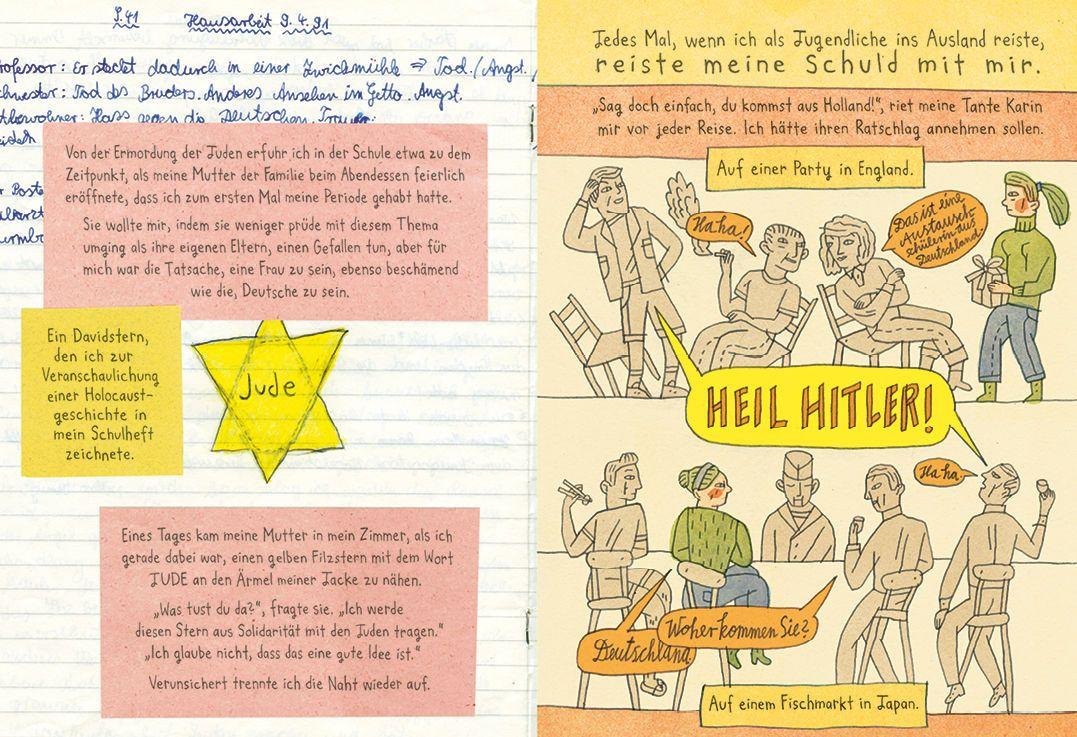 S.41 Hausarbeit 9.4.91
rofessor: Er steckt dadurch in einer Zwickmühle ⇒ Tod./Angst./
chwester: Tod des Bruders. Anderes Ansehen im Getto. Angst.
ttbewohner: Hass gegen die Deutschen. Trauer.
eideln
r Poste
Von der Ermordung der Juden erfuhr ich in der Schule etwa zu dem
Zeitpunkt, als meine Mutter der Familie beim Abendessen feierlich
eröffnete, dass ich zum ersten Mal meine Periode gehabt hatte.
Sie wollte mir, indem sie weniger prüde mit diesem Thema
umging als ihre eigenen Eltern, einen Gefallen tun, aber für
mich war die Tatsache, eine Frau zu sein, ebenso beschämend
wie die, Deutsche zu sein.
Ein Davidstern,
den ich zur
Veranschaulichung
einer Holocaust-
geschichte in
mein Schulheft
zeichnete.
Jude
Eines Tages kam meine Mutter in mein Zimmer, als ich
gerade dabei war, einen gelben Filzstern mit dem Wort
JUDE an den Ärmel meiner Jacke zu nähen.
„Was tust du da?“, fragte sie. „Ich werde
diesen Stern aus Solidarität mit den Juden tragen.“
„Ich glaube nicht, dass das eine gute Idee ist.“
Verunsichert trennte ich die Naht wieder auf.
Jedes Mal, wenn ich als Jugendliche ins Ausland reiste,
reiste meine Schuld mit mir.
„Sag doch einfach, du kommst aus Holland!“, riet meine Tante Karin
mir vor jeder Reise. Ich hätte ihren Ratschlag annehmen sollen.
Auf einer Party in England.
Haha!
Das ist eine
Austausch-
schülerin aus
Deutschland.
HEIL HITLER!
Ha ha.
Woher kommen Sie?
Deutschland.
Auf einem Fischmarkt in Japan.